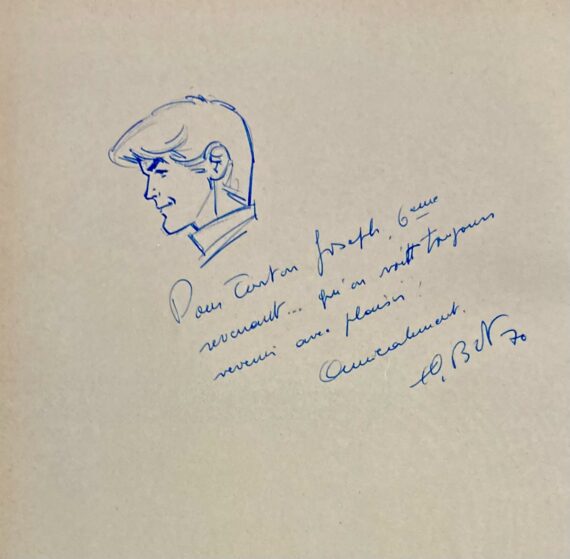 Pour Tonton Joseph, 6eme
revenant... qu'on voit toujours
revenir avec plaisir !
Amicalement.
70